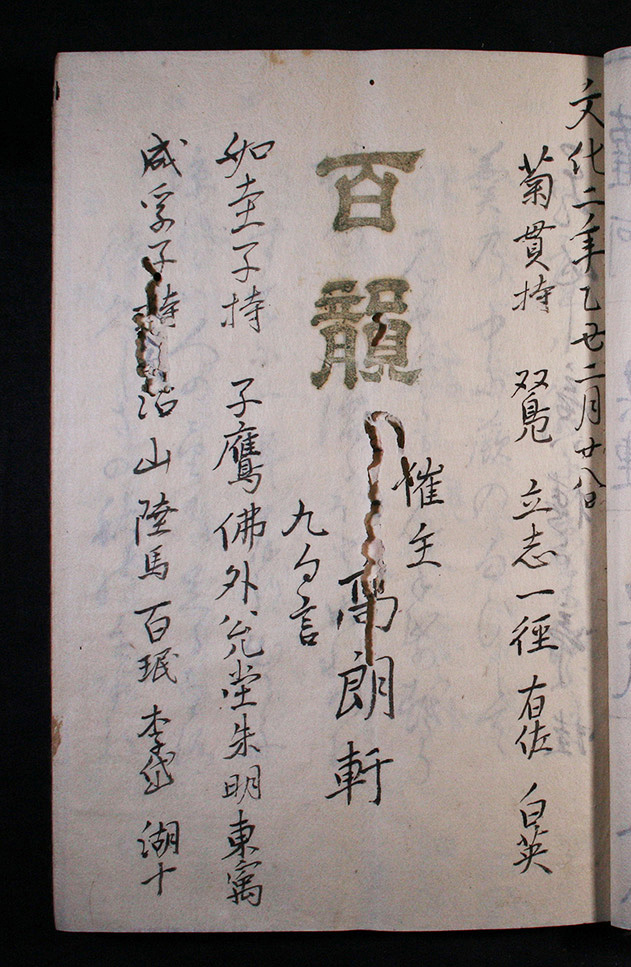 文化二年乙丑二月廿八日
菊貫持 双鳬 立志 一徑 右佐 白英
催主
高朗軒
百韻
九句言
如圭子持 子鷹 佛外 公允堂 朱明 東寓
咸孚子持 沾山 陸馬 百珉 李岱 湖十